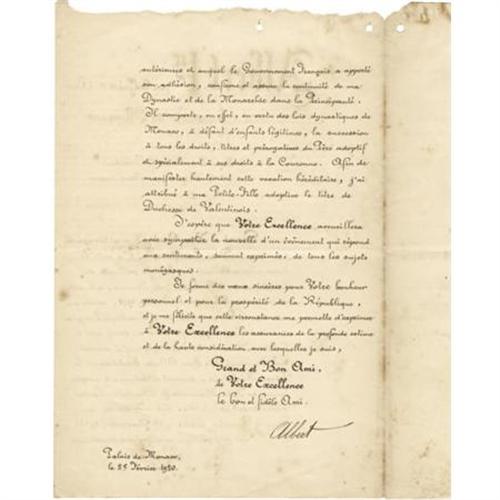 antérieures et auquel le Gouvernement Français a apporté
son adhésion, confirme et assure la continuité de ma
Dynastie et de la Monarchie dans la Principauté.
Il comporte, en effet, en vertu des lois dynastiques de
Monaco, à défaut d'enfants légitimes, la succession
à tous les droits, titres et prérogatives du Père adoptif
et spécialement à ses droits à la Couronne. Afin de
manifester hautement cette vocation héréditaire, j'ai
attribué à ma Petite-Fille adoptive le titre de
Duchesse de Valentinois.
J'espère que Votre Excellence accueillera
avec sympathie la nouvelle d'un événement qui répond
aux sentiments, souvent exprimés, de tous les sujets
monégasques.
Je forme des vœux sincères pour Votre bonheur
personnel et pour la prospérité de la République,
et je me félicite que cette circonstance me permette d'exprimer
à Votre Excellence les assurances de la profonde estime
et de la haute considération avec lesquelles je suis,
Grand et Bon Ami,
de Votre Excellence
le bon et fidèle Ami.
Albert
Palais de Monaco,
le 25 Février 1920.